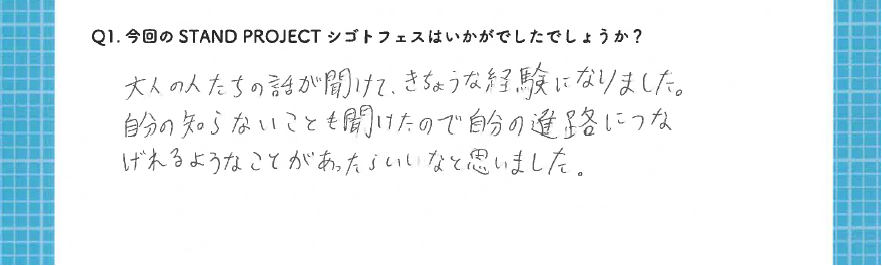 Q1. 今回の STAND PROJECT シゴトフェスはいかがでしたでしょうか?
大人の人たちの話が聞けて、きちょうな経験になりました。
自分の知らないことも聞けたので自分の進路につな
げれるようなことがあったらいいなと思いました。